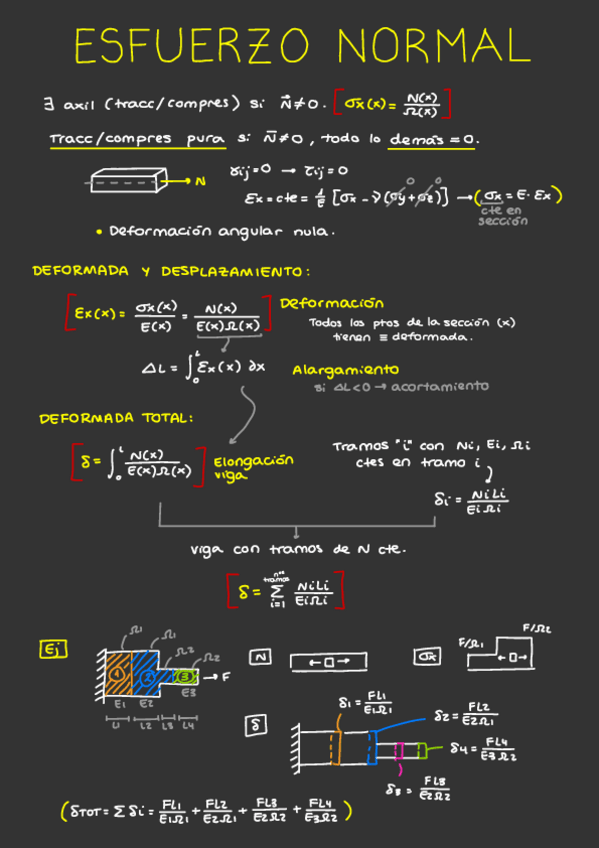 ESFUERZO NORMAL
∃ axil (tracc/compres) si N⃗≠0. [σx(x) = N(x)/Ω(x)]
Tracc/compres pura si N̄≠0, todo lo demás = 0.
N
γij=0 → τij=0
εx = cte = 1/E [σx - ν(σy+σz)] → (σx = E·εx)
0 0
cte en
sección
• Deformación angular nula.
DEFORMADA Y DESPLAZAMIENTO:
[εx(x) = σx(x)/E(x) = N(x)/E(x)Ω(x)] Deformación
Todos los ptos de la sección (x)
tienen ≡ deformada.
ΔL = ∫₀ᴸ εx(x) ∂x Alargamiento
si ΔL<0 → acortamiento
DEFORMADA TOTAL:
[δ = ∫₀ᴸ N(x)/E(x)Ω(x)] Elongación
viga
Tramos "i" con Ni, Ei, Ωi
ctes en tramo i
δi = NiLi/EiΩi
viga con tramos de N cte.
[δ = Σ NiLi/EiΩi]
nºº tramos
i=1
Ej
Ω1 Ω1 Ω2 Ω2
1 2 3
F
E1 E2 E3
L1 L2 L3 L4
N
σx
F/Ω1 F/Ω2
δ
δ1 = FL1/E1Ω1
δ2 = FL2/E2Ω1
δ4 = FL4/E3Ω2
δ3 = FL3/E2Ω2
(δTOT = Σ δi = FL1/E1Ω1 + FL2/E2Ω1 + FL3/E2Ω2 + FL4/E3Ω2)